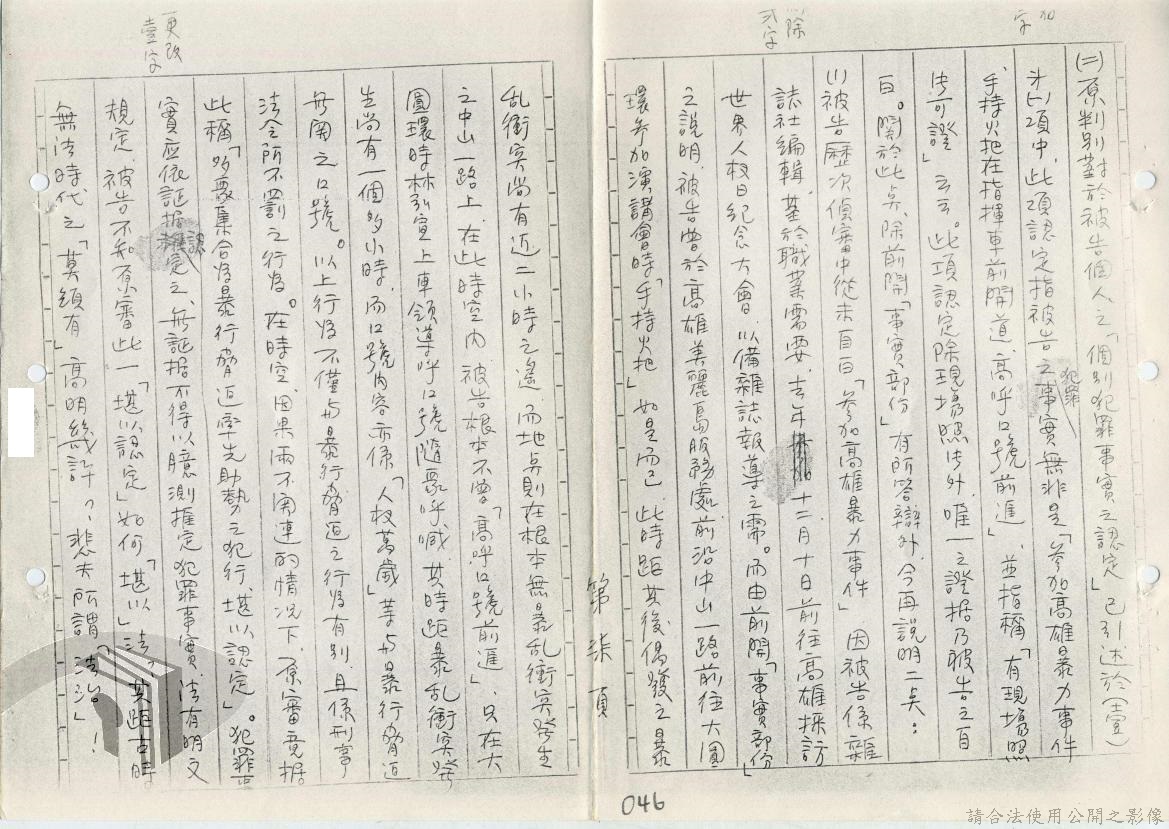 加
字
刪除
弍字
(二)原判別對於被告個人之「個別犯罪事實之認定」已引述於(壹)
犯罪
才(八)項中,此項認定指被告之事實無非是「參加高雄暴力事件
手持火把在指揮車前開道,高呼口號前進」,並指稱「有現場照
片可證」云云。此項認定除現場照片外,唯一之證据乃被告之自
白。關於此点,除前開「事實部份」有所答辯外,今再說明二点:
(1)被告歷次偵審中從未自白「參加高雄暴力事件」因被告係雜
誌社編輯,基於職業需要,去年十二月十日前往高雄採訪
世界人权日紀念大會,以備雜誌報導之需。而由前開「事實部份」
之說明,被告曾於高雄美麗島服務處前沿中山一路前往大圓
環參加演講會時「手持火把」如是而已,此時距其後偶發之暴
第柒頁
046
更改
壹字
乱衝突尚有近二小時之遙,而地点則在根本無暴乱衝突發生
之中山一路上,在此時空內,被告根本不曾「高呼口號前進」,只在大
圓環時林弘宣上車領導呼口號隨眾呼喊,其時距暴乱衝突發
生尚有一個多小時,而口號內容亦係「人权萬歲」等与暴行脅迫
無關之口號。以上行為不僅与暴行脅迫之行為有別,且係刑事
法令所不罰之行為。在時空、因果兩不關連的情況下,原審竟据
此稱「多眾集合為暴行脅迫率先助勢之犯行堪以認定」。犯罪事
實应依証据認定之,無証据不得以臆測推定犯罪事實,法有明文
規定,被告不知原審此一「堪以認定」如何「堪以」法,其距古時
無法時代之「莫須有」高明幾許?悲夫所謂「法治」!
請合法使用公開之影像